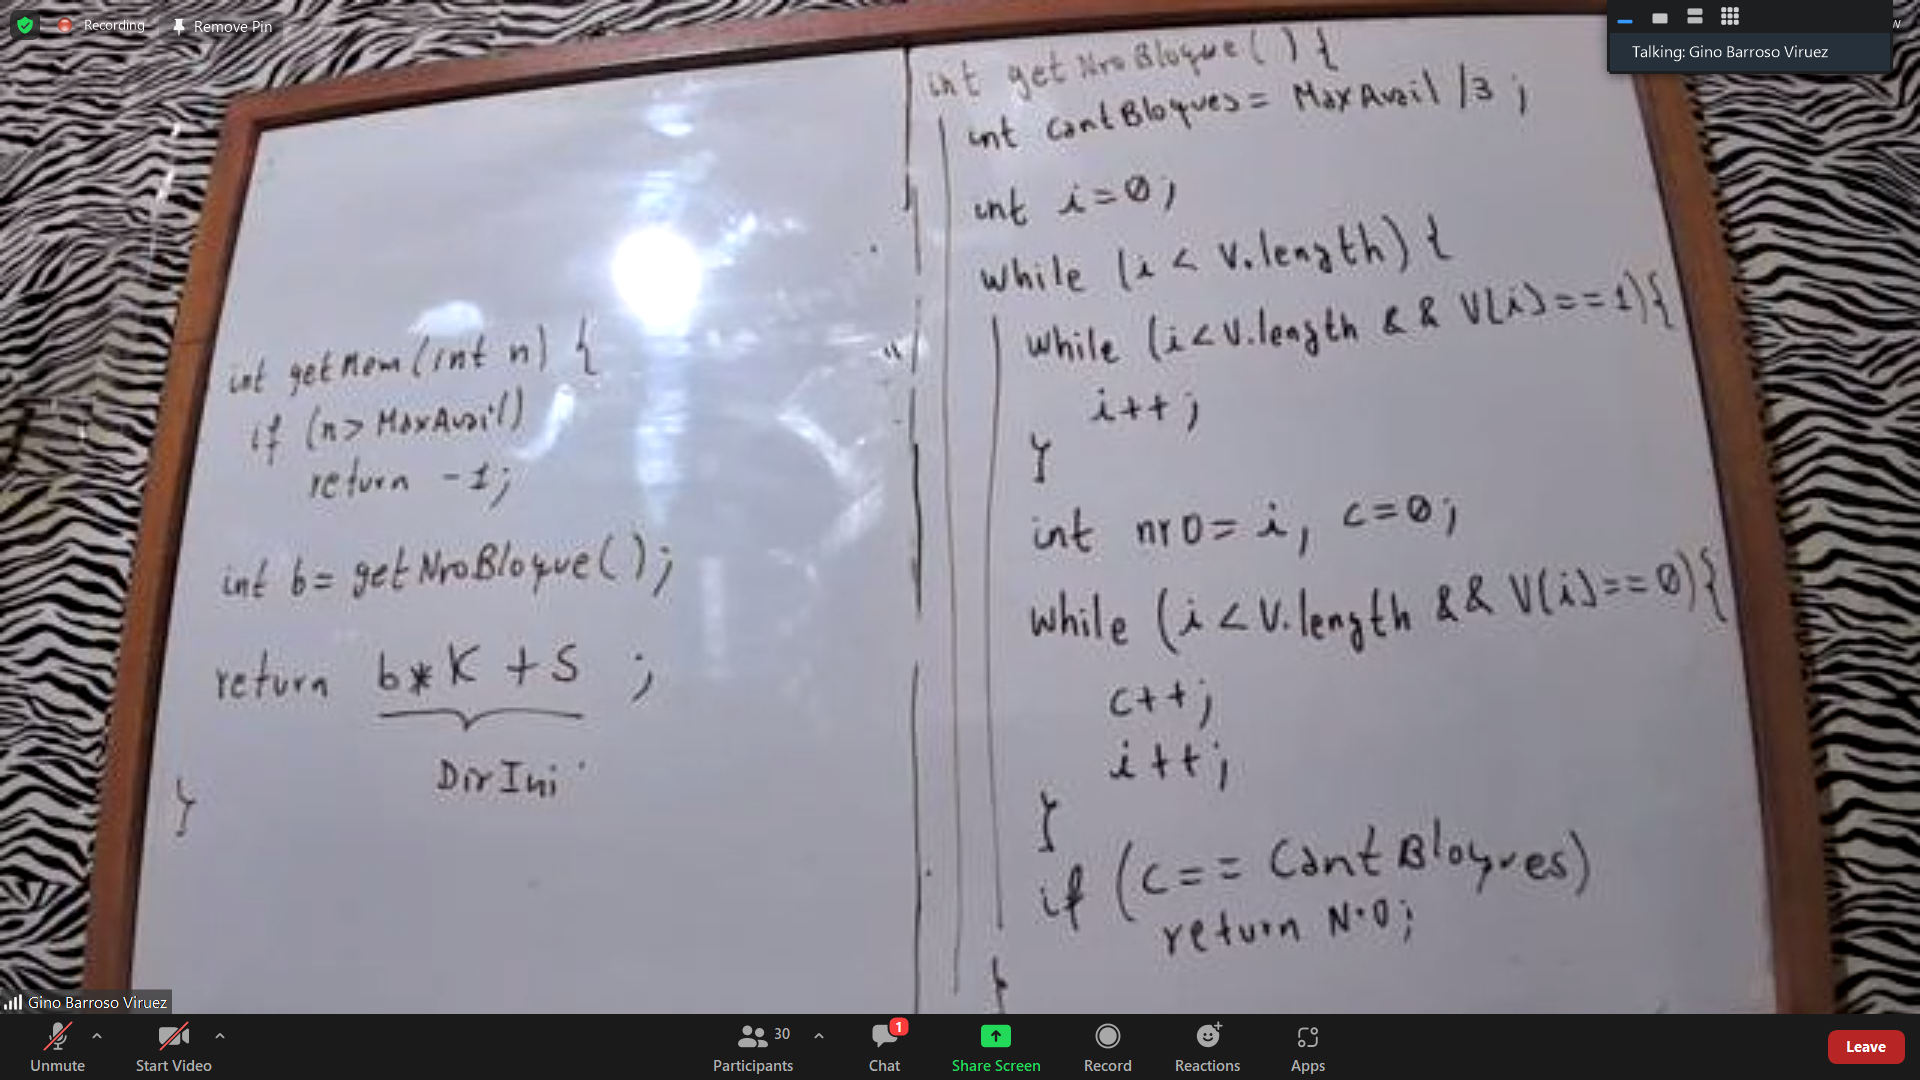 Recording
Remove Pin
Talking: Gino Barroso Viruez
int getMem (int n) {
if (n > MaxAvail)
return -1;
int b = getNroBloque();
return b*K + S ;
DirIni
}
int getNroBloque() {
int CantBloques = MaxAvail /3 ;
int i=0;
while (i < V.length) {
while (i<V.length && V[i]==1){
i++;
}
int nro = i, c=0;
while (i<V.length && V[i]==0){
c++;
i++;
}
if (c== CantBloques)
return Nro;
}
Gino Barroso Viruez
Unmute
Start Video
30
Participants
1
Chat
Share Screen
Record
Reactions
Apps
Leave